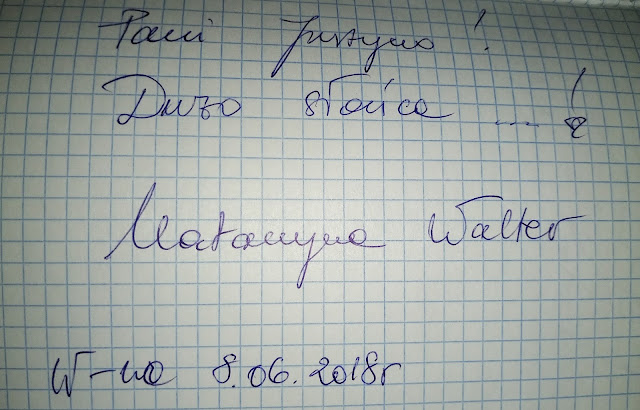 Pani Justyno!
Dużo słońca ...!
Katarzyna Walter
W-wa 8.06.2018r